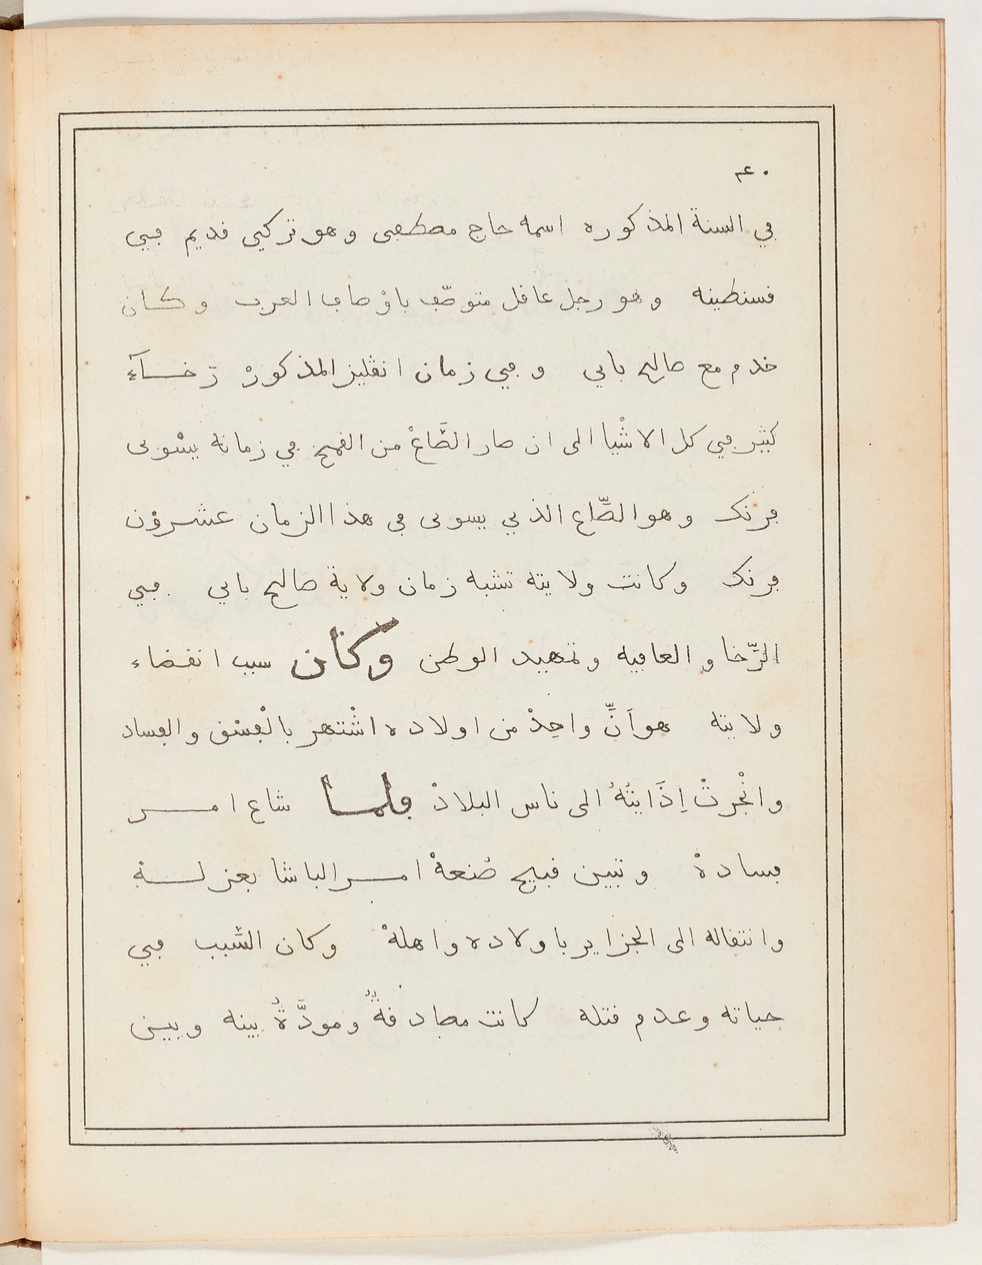 ٤٠
في السنة المذكوره اسمه حاج مصطفى وهو تركي قديم في
قسنطينه وهو رجل عاقل متوصّف باوْصاف العرب وكان
خدم مع صالح باي وفي زمان انڨليز المذكورْ رَخـــآءٌ
كثير في كل الاشْيا الى ان صار الصَّاعْ من القمح في زمانه يسْوى
فرنك وهو الصَّاع الذي يسوى في هذا الزمان عشرون
فرنك وكانت ولايته تشبه زمان ولاية صالح باي في
الرَّخا والعافيه وتمهيد الوطن وكان سبب انقضاء
ولايته هو اَنَّ واحِدْ من اولاده اشْتهر بالْفِسْق والفساد
وانْجرتْ اِذَايتُهُ الى ناس البلادْ فلمــا شاع امــر
فسادهْ وتبين قبيح صُنعهْ امــر الباشا بعزلــهْ
وانتقاله الى الجزاير باولاده واهلهْ وكان السَّبب في
حياته وعدم قتله كانت مصادقةٌ ومودَّةٌ بينه وبيـن